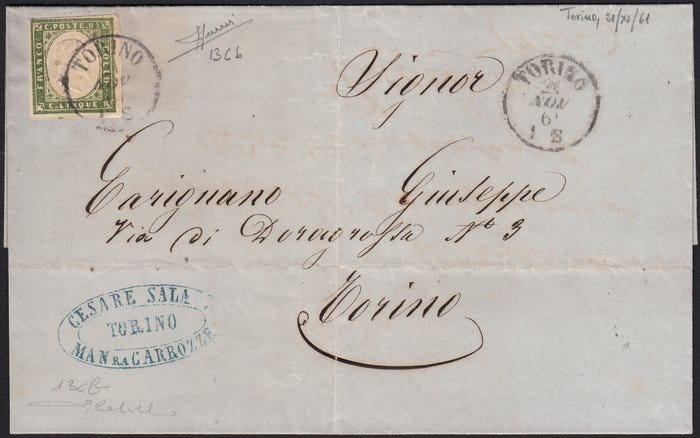 Torino, 21/XI/61
C. POSTE. 05
FRANCO
BOLLO
C. CINQUE
TORINO
S
13Cb
TORINO
21
NOV
61
1 S
Signor
Carignano Giuseppe
Via di Doragrossa N° 3
Torino
CESARE SALA
TORINO
MAN RA CARROZZE
13Cb